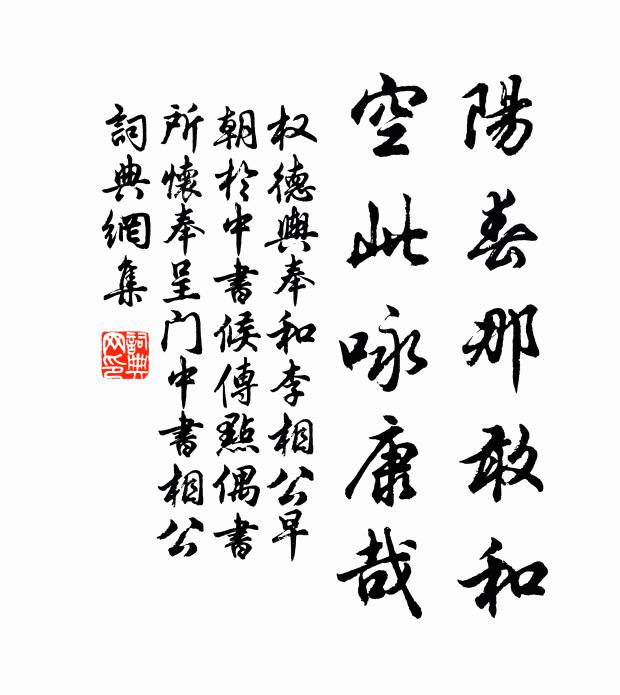 陽春那敢和
空此咏康哉
权德輿奉和李相公早
朝於中書候傳點偶書
所懷奉呈门中書相公
詞典網集
詞典網印